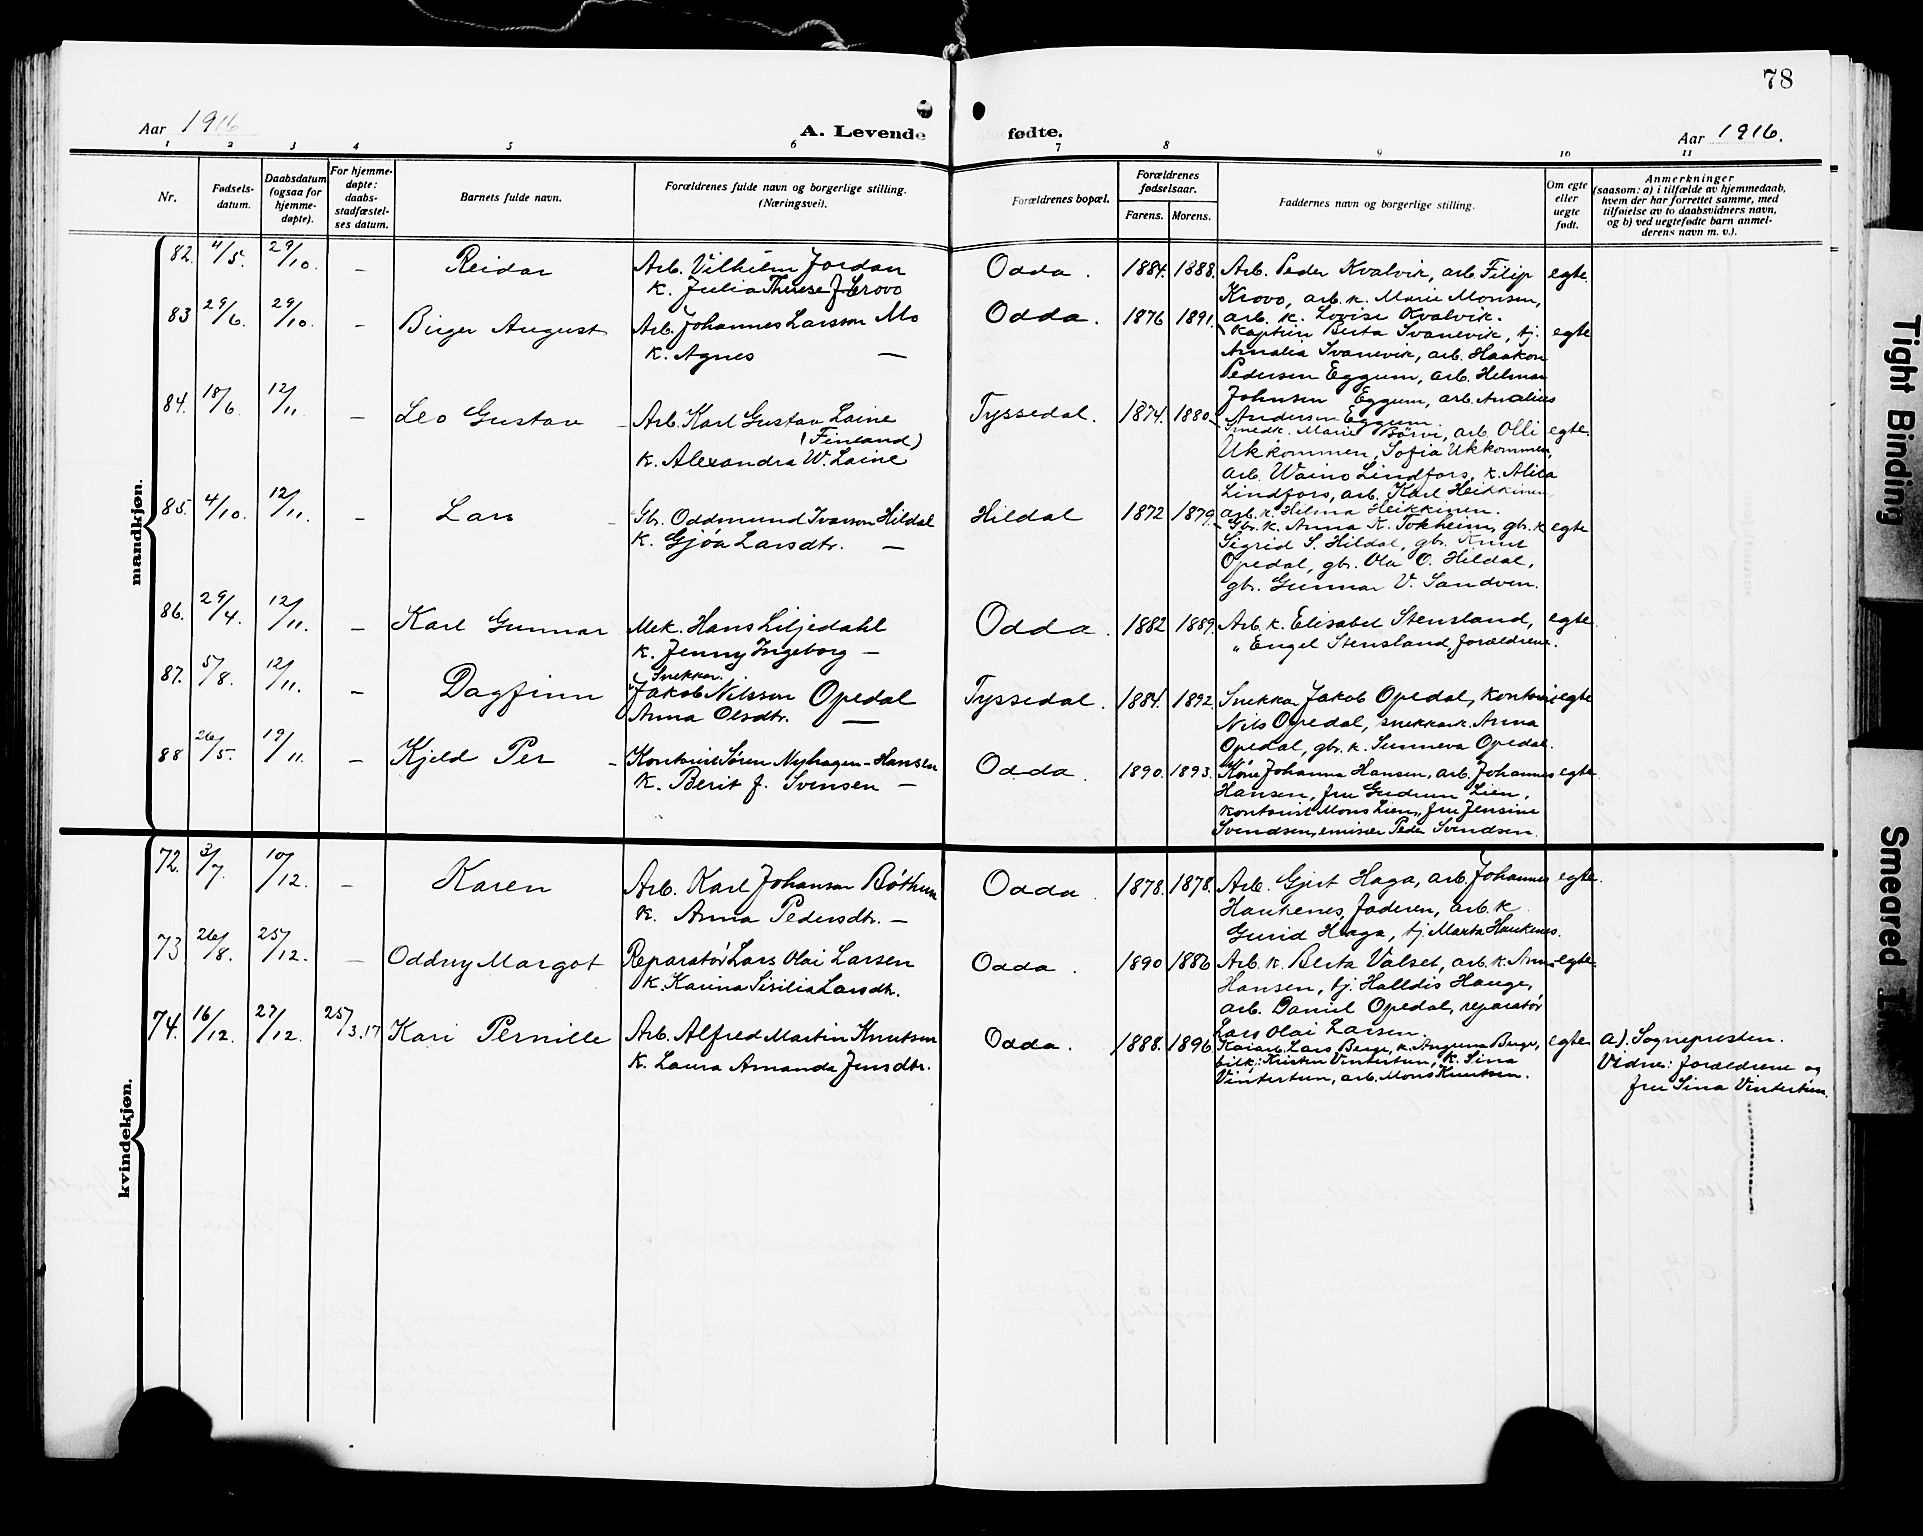 78
Aar 1916
A. Levende fødte.
Aar 1916.
1 2 3 4 5 6 7 8 9 10 11
Nr.
Fødsels-
datum.
Daabsdatum
(ogsaa for
hjemme-
døpte).
For hjemme-
døpte:
daabs-
stadfæstel-
ses datum.
Barnets fulde navn.
Forældrenes fulde navn og borgerlige stilling.
(Næringsvei).
Forældrenes bopæl.
Forældrenes
fødselsaar.
Farens. Morens.
Faddernes navn og borgerlige stilling.
Om egte
eller
uegte
født.
Anmerkninger
(saasom: a) i tilfælde av hjemmedaab,
hvem der har forrettet samme, med
tilføielse av to daabsvidners navn,
og b) ved uegtefødte barn anmel-
derens navn m. v.).
mandkjøn.
82. 4/5. 29/10. – Reidar
Arb. Vilhelm Jordan
k. Julia Therese f. Krovo
Odda. 1884. 1888.
Arb. Peder Kvalvik, arb. Filip
Krovo, arb. k. Marie Monsen,
arb. k. Lovise Kvalvik.
egte.
83 29/6. 29/10. – Birger August
Arb. Johannes Larsson Mo
k. Agnes –
Odda. 1876 1891.
Kaptein Berta Svanevik, tj.
Amalia Svanevik, arb. Haakon
Pedersen Eggum, arb. Helmar
Johnsen Eggum, arb. Analius
Andersen Eggum.
egte
84. 18/6. 12/11. – Leo Gustav
Arb. Karl Gustav Laine
(Finland)
k. Alexandra W. Laine
Tyssedal. 1874. 1880.
Smedk. Marie Børve, arb. Olli
Ukkommen, Sofia Ukkommen,
arb. Waino Lindfors, k. Alita
Lindfors, arb. Karl Heikkinen
arb. k. Hilma Heikkinen.
egte.
85. 4/10. 12/11. – Lars
Gbr. Oddmund Ivarson Hildal
k. Gjøa Larsdtr. –
Hildal 1872 1879.
Gbr. k. Anna K. Tokheim, gbr. k
Sigrid S. Hildal, gbr. Knut
Opedal, gbr. Ola O. Hildal,
gbr. Gunnar V. Sandven.
egte
86. 29/4. 12/11. – Karl Gunnar
Mek. Hans Liljedahl
k. Jenny Ingeborg –
Odda. 1882 1889.
Arb. k. Elisabet Stensland,
„ Engel Stensland, forældrene.
egte.
87. 5/8. 12/11. – Dagfinn
Snekker.
Jakob Nilsson Opedal
Anna Olsdtr. –
Tyssedal. 1884. 1892
Snekker Jakob Opedal, kontorist
Nils Opedal, snekkerk. Anna
Opedal, gbr. k. Sunneva Opedal.
egte
88 26/5. 19/11. – Kjeld Per
Kontorist Søren Nyhagen-Hansen
k. Berit f. Svensen –
Odda. 1890. 1893.
Kone Johanna Hansen, arb. Johannes
Hansen, fru Gudrun Lien,
kontorist Mons Lien, fru Jensine
Svendsen, emissær Peder Svendsen.
egte.
kvindekjøn.
72. 3/7. 10/12. – Karen
Arb. Karl Johanson Bøthun
k. Anna Pedersdtr. –
Odda. 1878. 1878.
Arb. Gjert Haga, arb. Johannes
Haukenes, faderen, arb. k
Gurid Haga, tj. Marta Haukenes.
egte.
73 26/8. 25/12. – Oddny Margot
Reparatør Lars Olai Larsen
k. Karina Sisilia Larsdtr.
Odda. 1890 1886
Arb. k. Berta Valset, arb. k. Anna
Hansen, tj. Halldis Hauge,
arb. Daniel Opedal, reparatør
Lars Olai Larsen.
egte.
74. 16/12. 27/12. 25/3.17 Kari Pernille
Arb. Alfred Martin Knutsen
k. Laura Amanda Jensdtr.
Odda. 1888. 1896
Kaiarb. Lars Berge, k. Anguna Berge,
Kristen Vintertun, k. Sina
Vintertun, arb. Mons Knutsen.
egte
a). Sognepresten.
Vidner: forældrene og
fru Sina Vintertun.
Tight Binding
Smeared